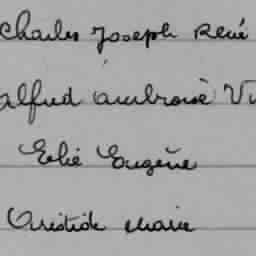 Charles Joseph René
Alfred Ambroise Vi
Elie Eugène
Aristide Marie